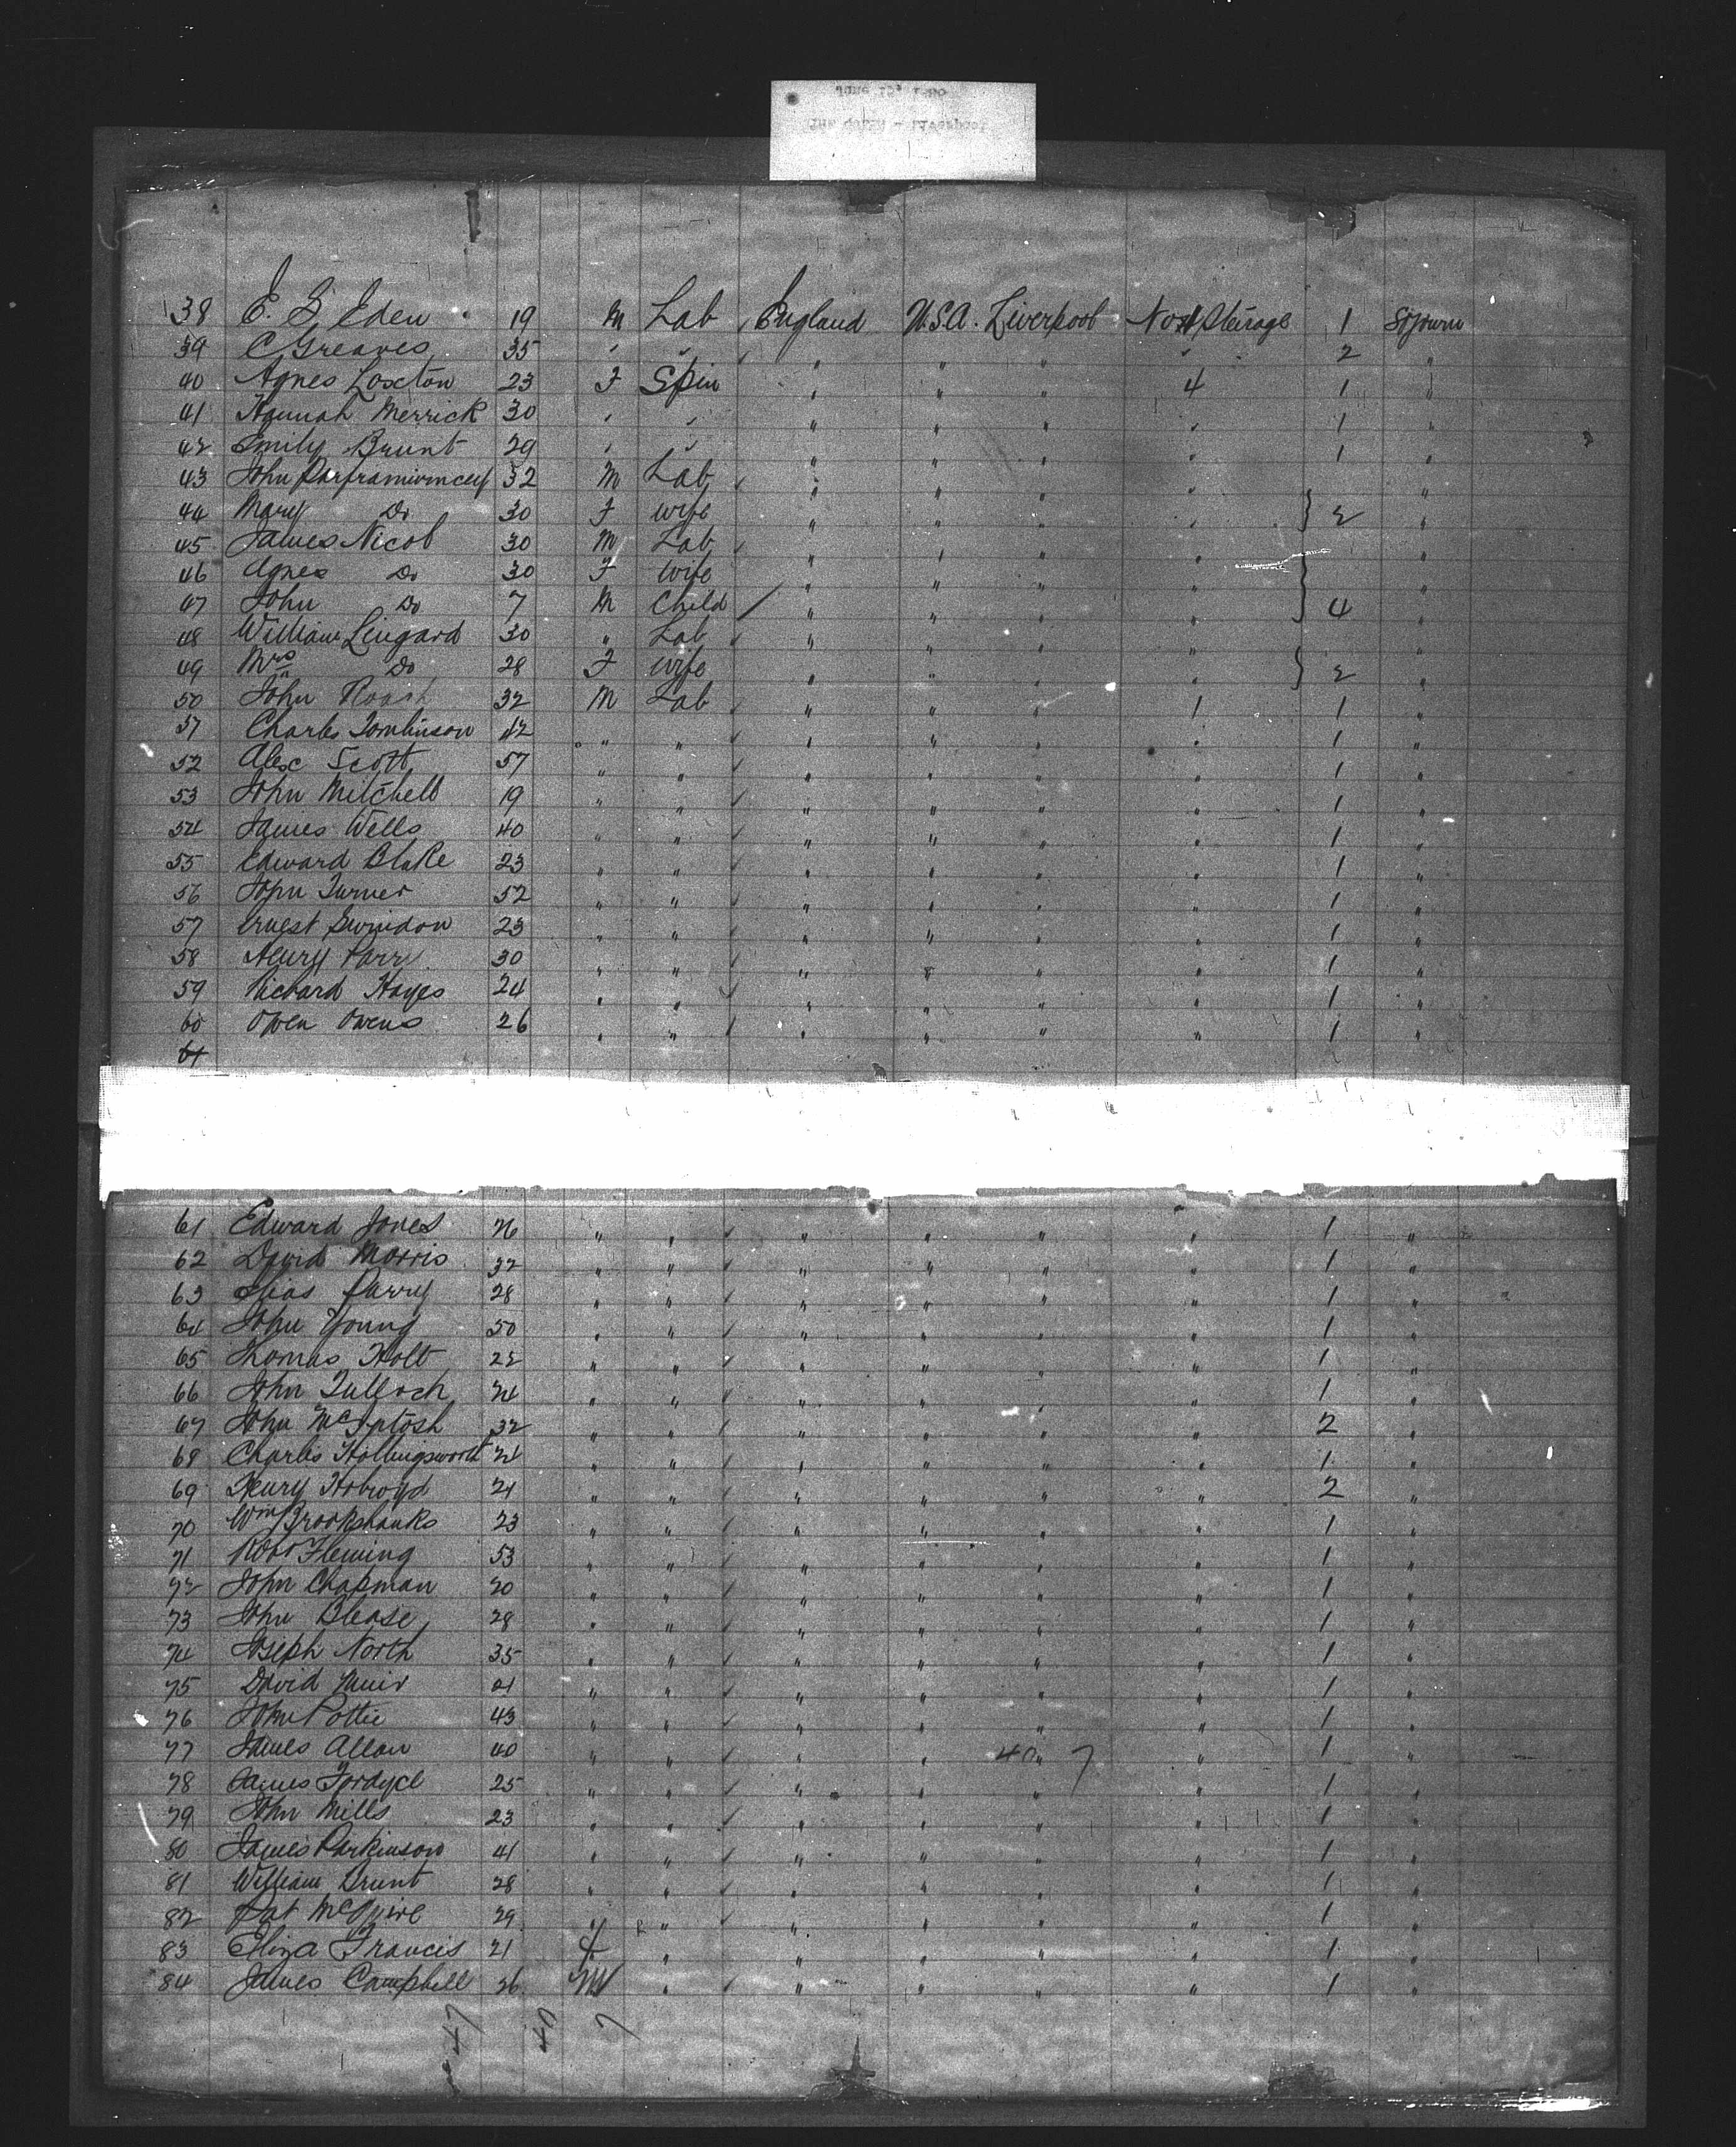 38 E. G. Eden 19 M Lab England U.S.A. Liverpool No 4 Steirage 1 Sojourn
39 C Greaves 35 " " " " " " 2 "
40 Agnes Loxton 23 F Spin " " " 4 1 "
41 Hannah Merrick 30 " " " " " " 1 "
42 Emily Brunt 29 " " " " " " 1 "
43 John 32 M Lab " " " " "
44 Mary Do 30 F Wife " " " " 2 "
45 James Nicol 30 M Lab " " " " "
46 Agnes Do 30 F Wife " " " " "
47 John Do 7 M Child " " " " 4 "
48 William Lingard 30 " Lab " " " " "
49 Mrs Do 28 F Wife " " " " 2 "
50 John Roach 32 M Lab " " " 1 1 "
51 Charles Tomlinson 42 " " " " " " 1 "
52 Alex Scott 57 " " " " " " 1 "
53 John Mitchell 19 " " " " " " 1 "
54 James Wells 40 " " " " " " 1 "
55 Edward Blake 23 " " " " " " 1 "
56 John Turner 52 " " " " " " 1 "
57 Ernest Swindon 23 " " " " " " 1 "
58 Henry Parr 30 " " " " " " 1 "
59 Richard Hayes 24 " " " " " " 1 "
60 Owen Owens 26 " " " " " " 1 "
61
61 Edward Jones 26 " " " " " " 1 "
62 David Morris 32 " " " " " " 1 "
63 Elias Parry 28 " " " " " " 1 "
64 John Young 50 " " " " " " 1 "
65 Thomas Holt 22 " " " " " " 1 "
66 John Tulloch 24 " " " " " " 1 "
67 John McIntosh 32 " " " " " " 2 "
68 Charles Hollingsworth 24 " " " " " " 1 "
69 Henry Holroyd 21 " " " " " " 2 "
70 Wm Brookshanks 23 " " " " " " 1 "
71 Robt Fleming 53 " " " " " " 1 "
72 John Chapman 20 " " " " " " 1 "
73 John Blease 28 " " " " " " 1 "
74 Joseph North 35 " " " " " " 1 "
75 David Muir 21 " " " " " " 1 "
76 John Pottie 43 " " " " " " 1 "
77 James Allan 40 " " " " 40 " 7 " 1 "
78 James Fordyce 25 " " " " " " 1 "
79 John Mills 23 " " " " " " 1 "
80 James Parkinson 41 " " " " " " 1 "
81 William Brunt 28 " " " " " " 1 "
82 Pat McGuire 29 " " " " " " 1 "
83 Eliza Francis 21 F " " " " " 1 "
84 James Campbell 26 M " " " " " 1 "
47 40 7